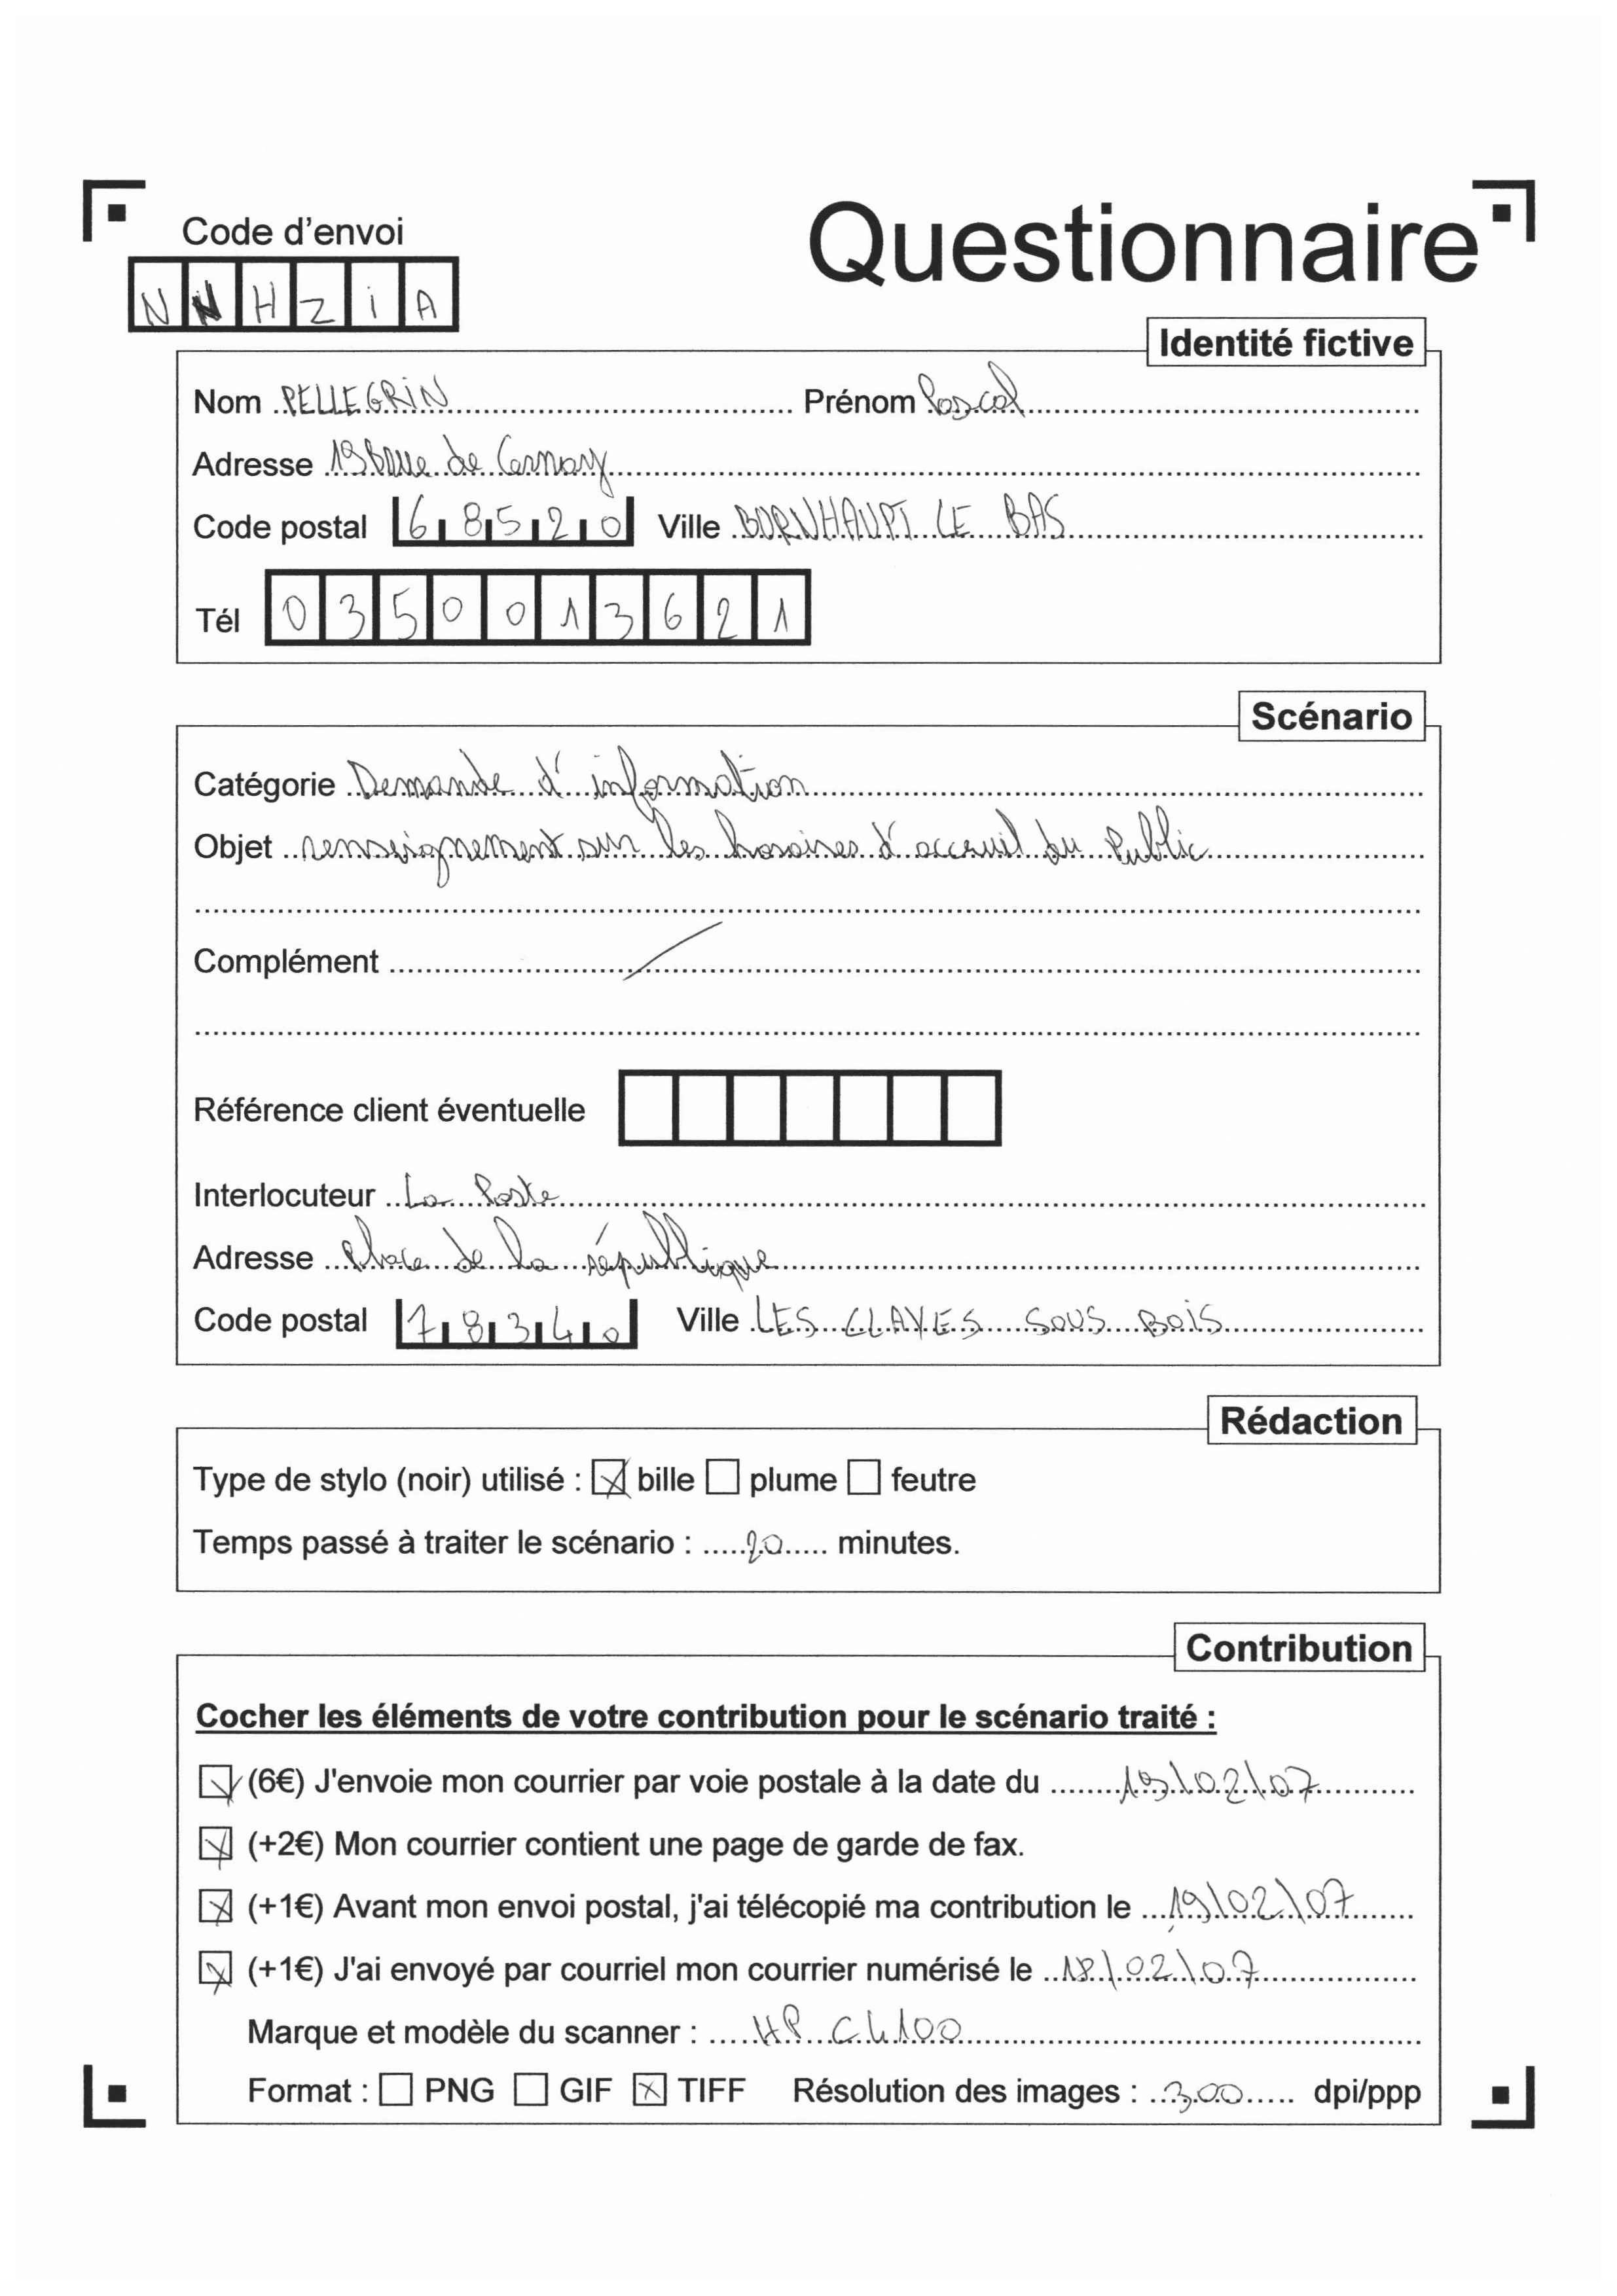 Questionnaire
Code d'envoi
NNHZiA
Identité fictive
Nom PELLEGRIN Prénom Pascal
Adresse 19 Rue de Cernay
Code postal 68520 Ville BURNHAUPT LE BAS
Tél 0350013621
Scénario
Catégorie Demande d'information
Objet renseignement sur les horaires d'acceuil du Public
Complément /
Référence client éventuelle
Interlocuteur La Poste
Adresse place de la république
Code postal 78340 Ville LES CLAYES SOUS BOiS
Rédaction
Type de stylo (noir) utilisé : bille plume feutre
Temps passé à traiter le scénario : 20 minutes.
Contribution
Cocher les éléments de votre contribution pour le scénario traité :
(6€) J'envoie mon courrier par voie postale à la date du 19\02\07
(+2€) Mon courrier contient une page de garde de fax.
(+1€) Avant mon envoi postal, j'ai télécopié ma contribution le 19\02\07
(+1€) J'ai envoyé par courriel mon courrier numérisé le 18\02\07
Marque et modèle du scanner : HP C4100
Format : PNG GIF TIFF Résolution des images : 300 dpi/ppp